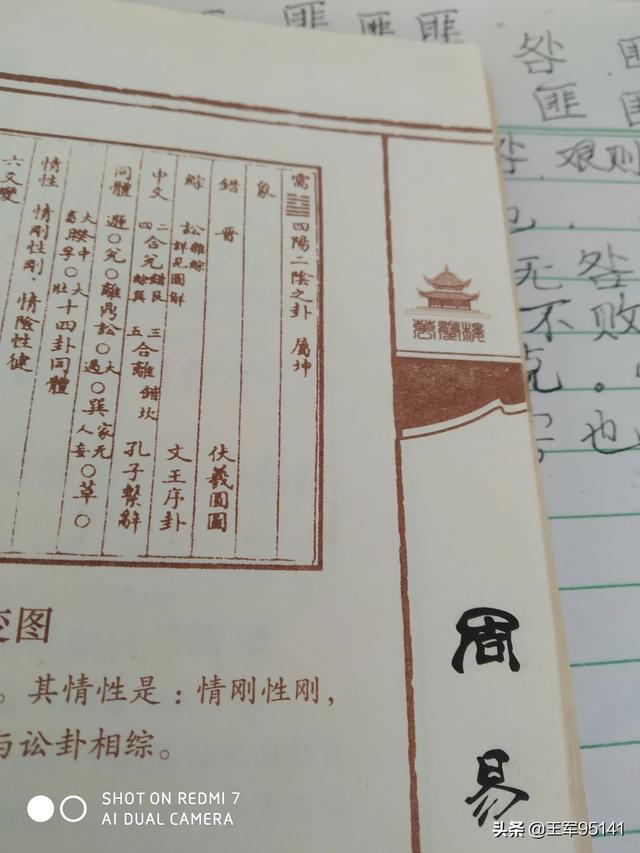 匪 匪 匪 匪
咎
匪
艰则
也
无咎
不败
克。
也
需 四陽二陰之卦 屬坤
象
錯 晉 伏羲圓圖
綜 訟 文王序卦
詳見圖解
中爻 二合兌 三合離 錯坎 孔子繫辭
四 五
同體 遯〇兌〇離鼎訟〇大過〇巽家人无妄〇革〇
大畜睽中孚〇大壯十四卦同體
情性 情剛性剛,情險性健
六爻變
变图
。其情性是:情刚性刚,
与讼卦相综。
周易
SHOT ON REDMI 7
AI DUAL CAMERA
头条 @王军95141